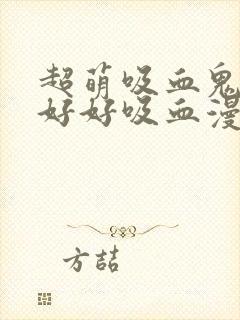 超萌吸血鬼
好好吸血漫
方喆